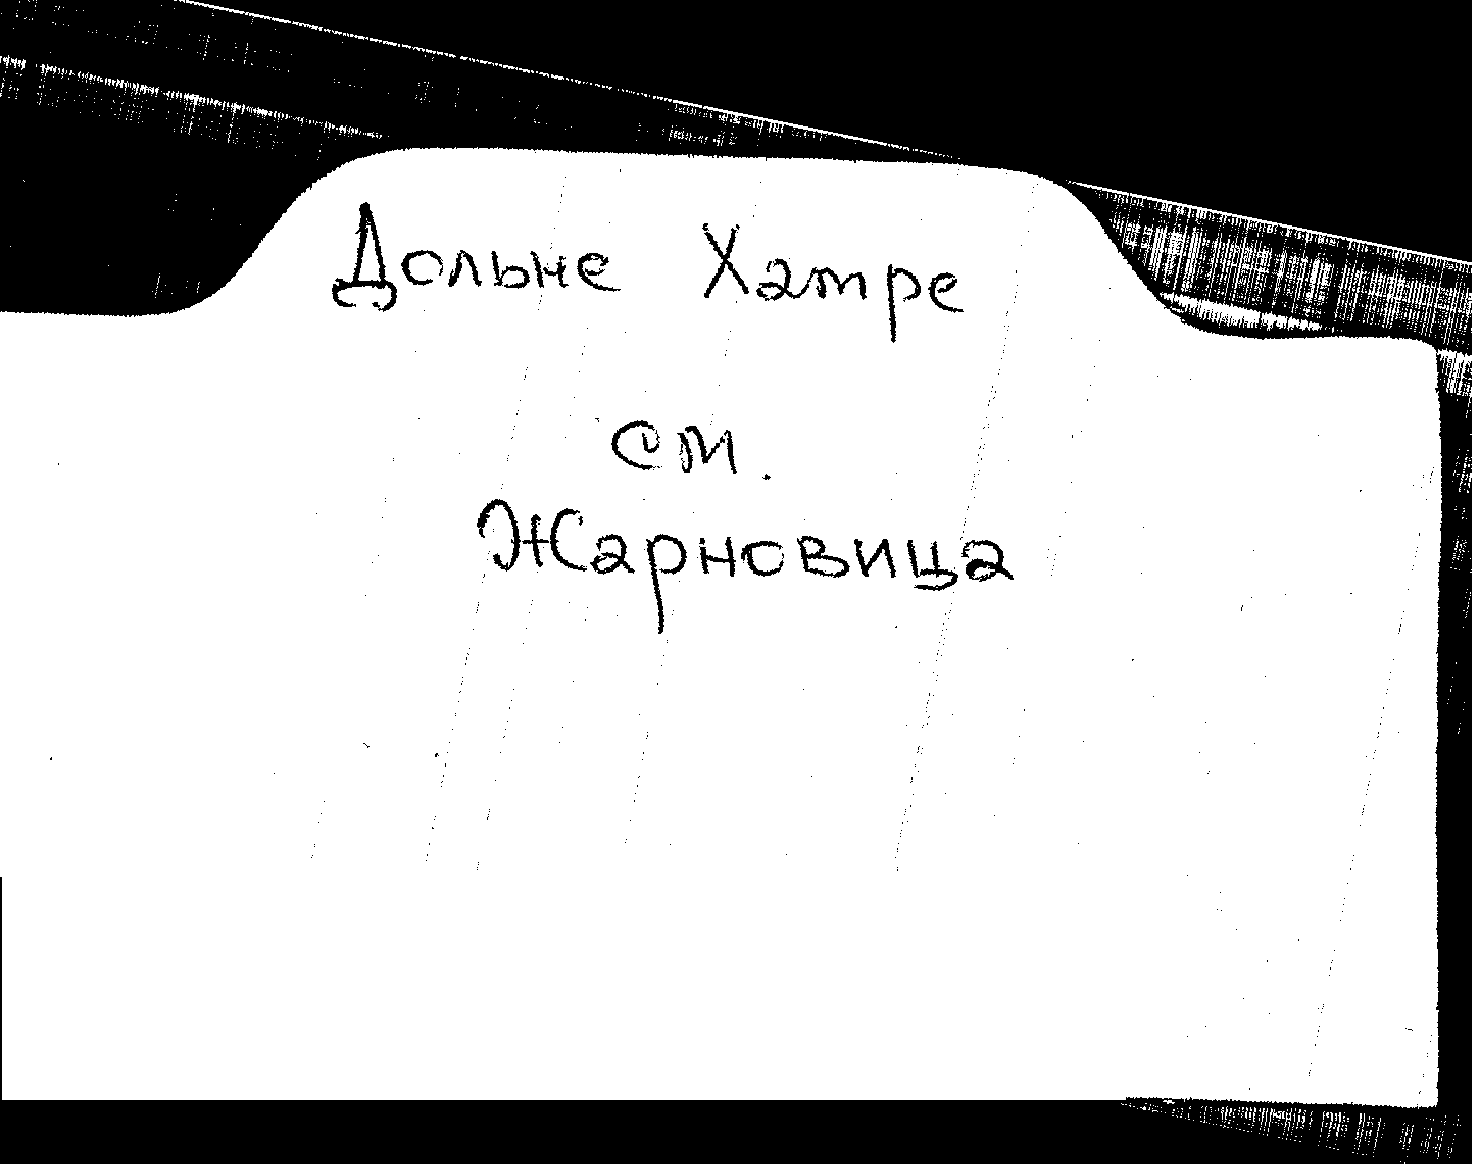 Дольне Хатре
см.
Жарновица